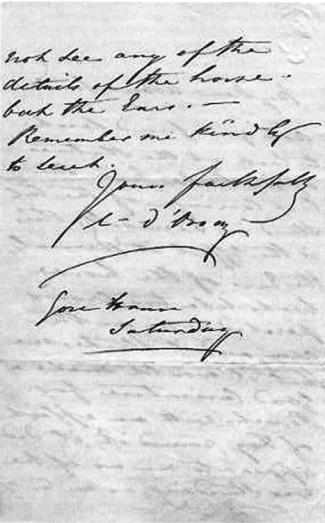 not see any of the
details of the horse.
but the Ears. —
Remember me kindly
to Leech.
Yours faithfully
d'Orsay
Gore House
Saturday